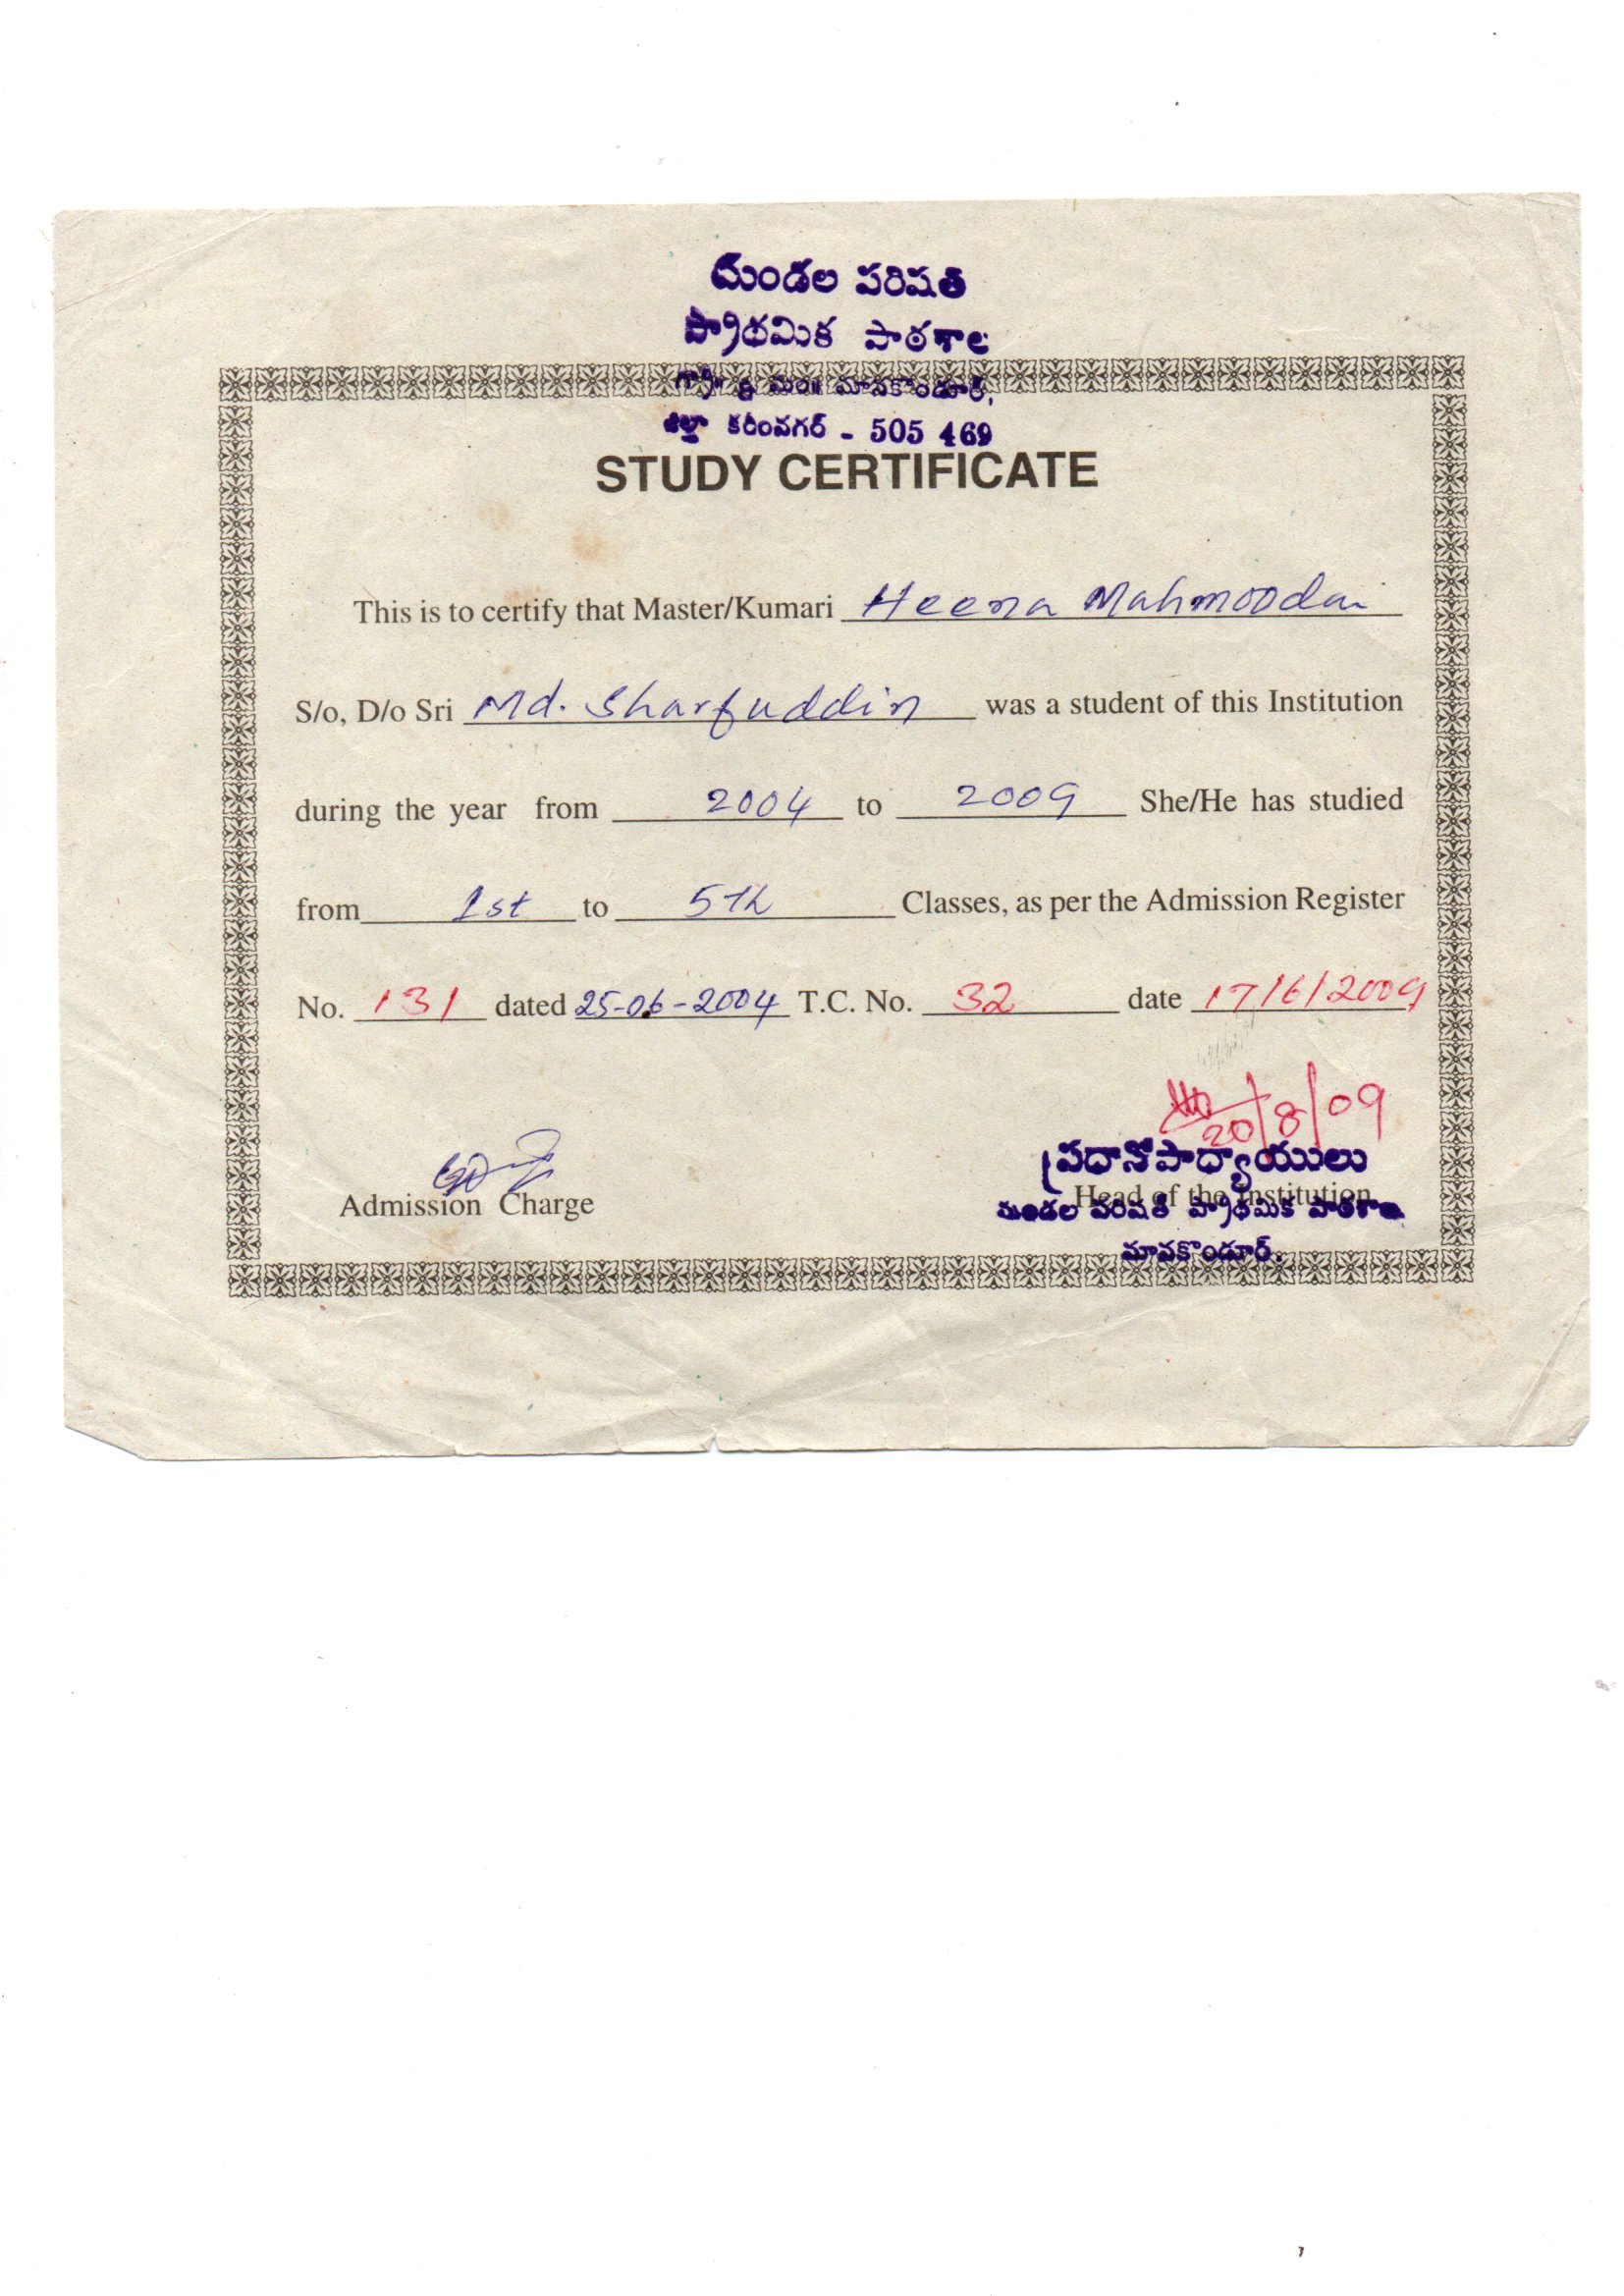 మండల పరిషత్
ప్రాథమిక పాఠశాల
గ్రా॥ & మం॥ మానకొండూర్,
జిల్లా కరీంనగర్ - 505 469
STUDY CERTIFICATE
This is to certify that Master/Kumari Heena Mahmooda
S/o, D/o Sri Md. Sharfuddin was a student of this Institution
during the year from 2004 to 2009 She/He has studied
from 1st to 5th Classes, as per the Admission Register
No. 131 dated 25-06-2004 T.C. No. 32 date 17/6/2009
20/8/09
ప్రధానోపాధ్యాయులు
Admission Charge Head of the Institution
మండల పరిషత్ ప్రాథమిక పాఠశాల
మానకొండూర్.